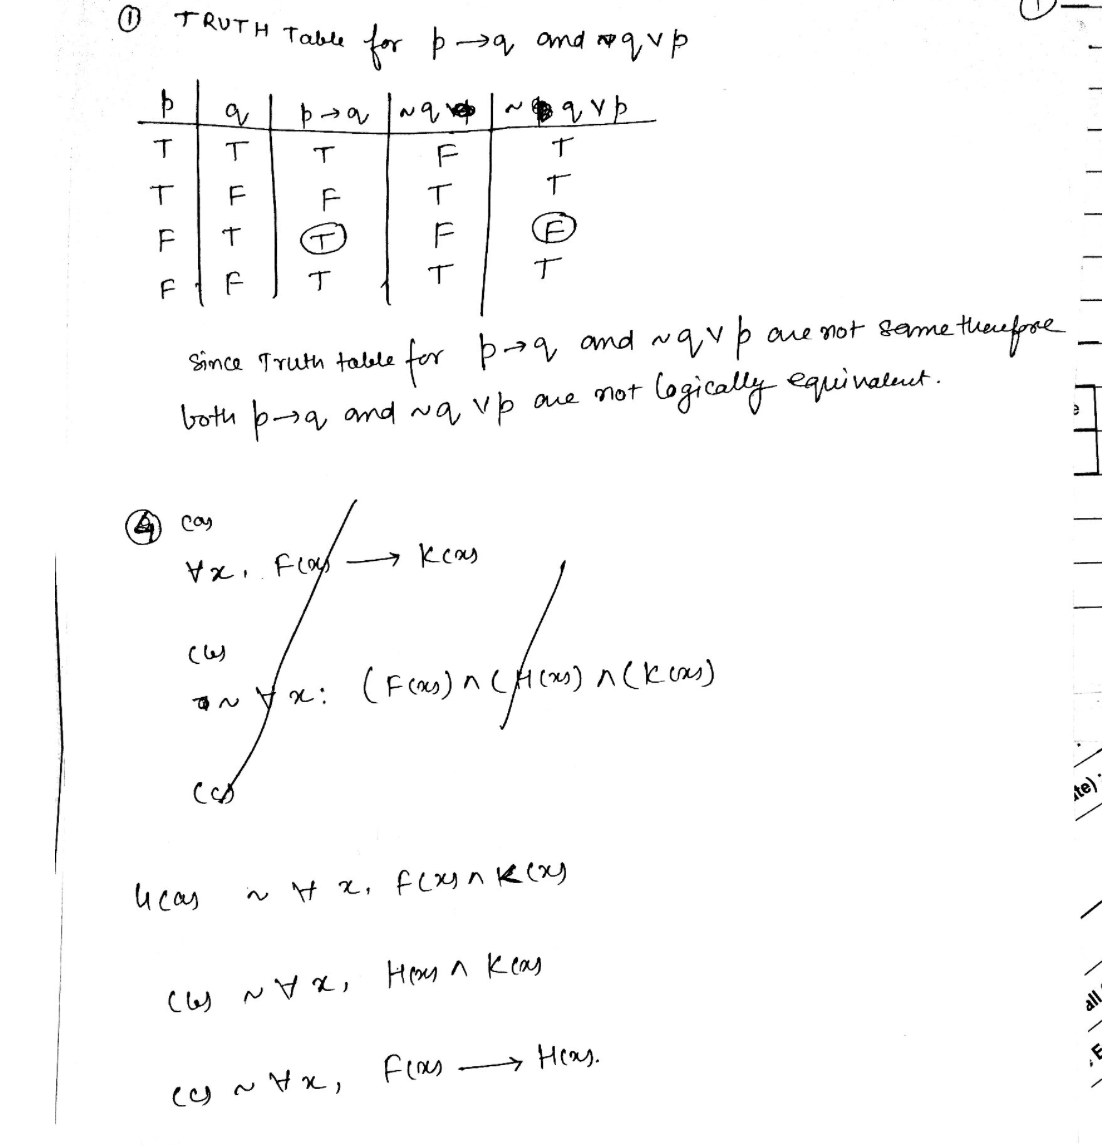 ① TRUTH Table for p→q and ~q∨p
p q p→q ~q ~q∨p
T T T F T
T F F T T
F T T F F
F F T T T
Since Truth table for p→q and ~q∨p are not same therefore
both p→q and ~q∨p are not logically equivalent.
④ (a)
∀x, F(x) → K(x)
(b)
~∀x: (F(x)) ∧ (H(x)) ∧ (K(x))
(c)
4(a) ~∀x, F(x) ∧ K(x)
(b) ~∀x, H(x) ∧ K(x)
(c) ~∀x, F(x) → H(x).
ate).
all